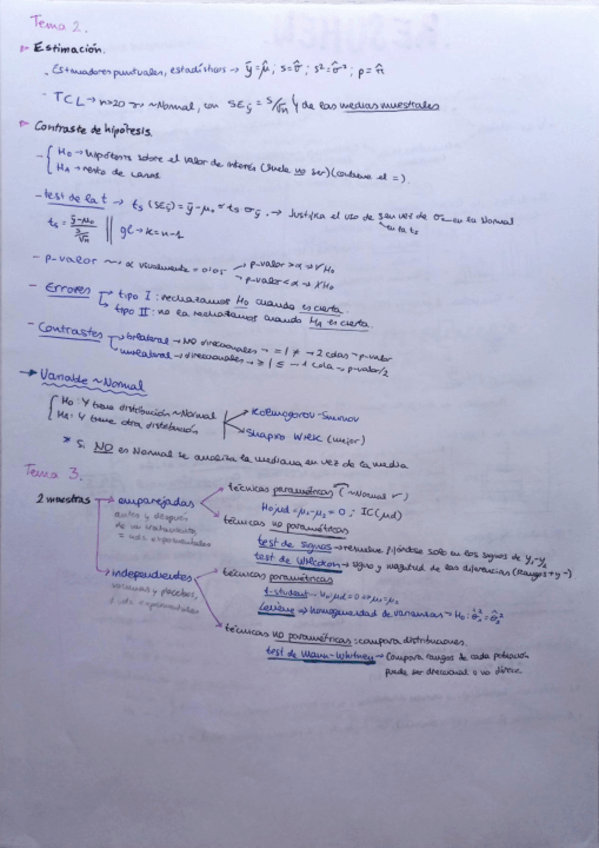 Tema 2.
Estimación.
. Estimadores puntuales, estadísticos → ȳ = μ̂ ; s = σ̂ ; s² = σ̂² ; p = π̂
- TCL → n>20 → ~Normal, con SEȳ = s/√n y de las medias muestrales
Contraste de hipótesis.
- { H₀ → hipótesis sobre el valor de interés (suele no ser) (contiene el =).
H_A → resto de casos
- test de la t → ts (SEȳ) = ȳ - μ₀ = ts σȳ. → Justifica el uso de s en vez de σ en la Normal
en la ts
ts = ȳ-μ₀ / s/√n || gl → k = n-1
- p-valor ~ α usualmente = 0'05 → p-valor > α → ✓ H₀
→ p-valor < α → X H₀
- Errores → tipo I : rechazamos H₀ cuando es cierta.
→ tipo II : no la rechazamos cuando H_A es cierta.
- Contrastes → bilateral → NO direccionales → = | ≠ → 2 colas → p-valor
→ unilateral → direccionales → ≥ | ≤ → 1 cola → p-valor/2
→ Variable ~ Normal
{ H₀: Y tiene distribución ~ Normal → Kolmogorov-Smirnov
H_A: Y tiene otra distribución → Shapiro Wilk (mejor)
* Si NO es Normal se analiza la mediana en vez de la media
Tema 3.
2 muestras → emparejadas → técnicas paramétricas (~Normal ✓)
antes y después
de un tratamiento
= uds. experimentales
H₀: μd = μ₁ - μ₂ = 0 ; IC (μd)
→ técnicas no paramétricas
test de signos → resuelve fijándose solo en los signos de y₁-y₂
test de Wilcoxon → signo y magnitud de las diferencias (Rangos + y -)
→ independientes → técnicas paramétricas
vacunas y placebos,
≠ uds. experimentales
t-student → H₀: μd = 0 → μ₁ = μ₂
Levene → homogeneidad de varianzas → H₀: σ̂₁² = σ̂₂²
→ técnicas no paramétricas : compara distribuciones
test de Mann-Whitney → Compara rangos de cada población
puede ser direccional o no direcc.